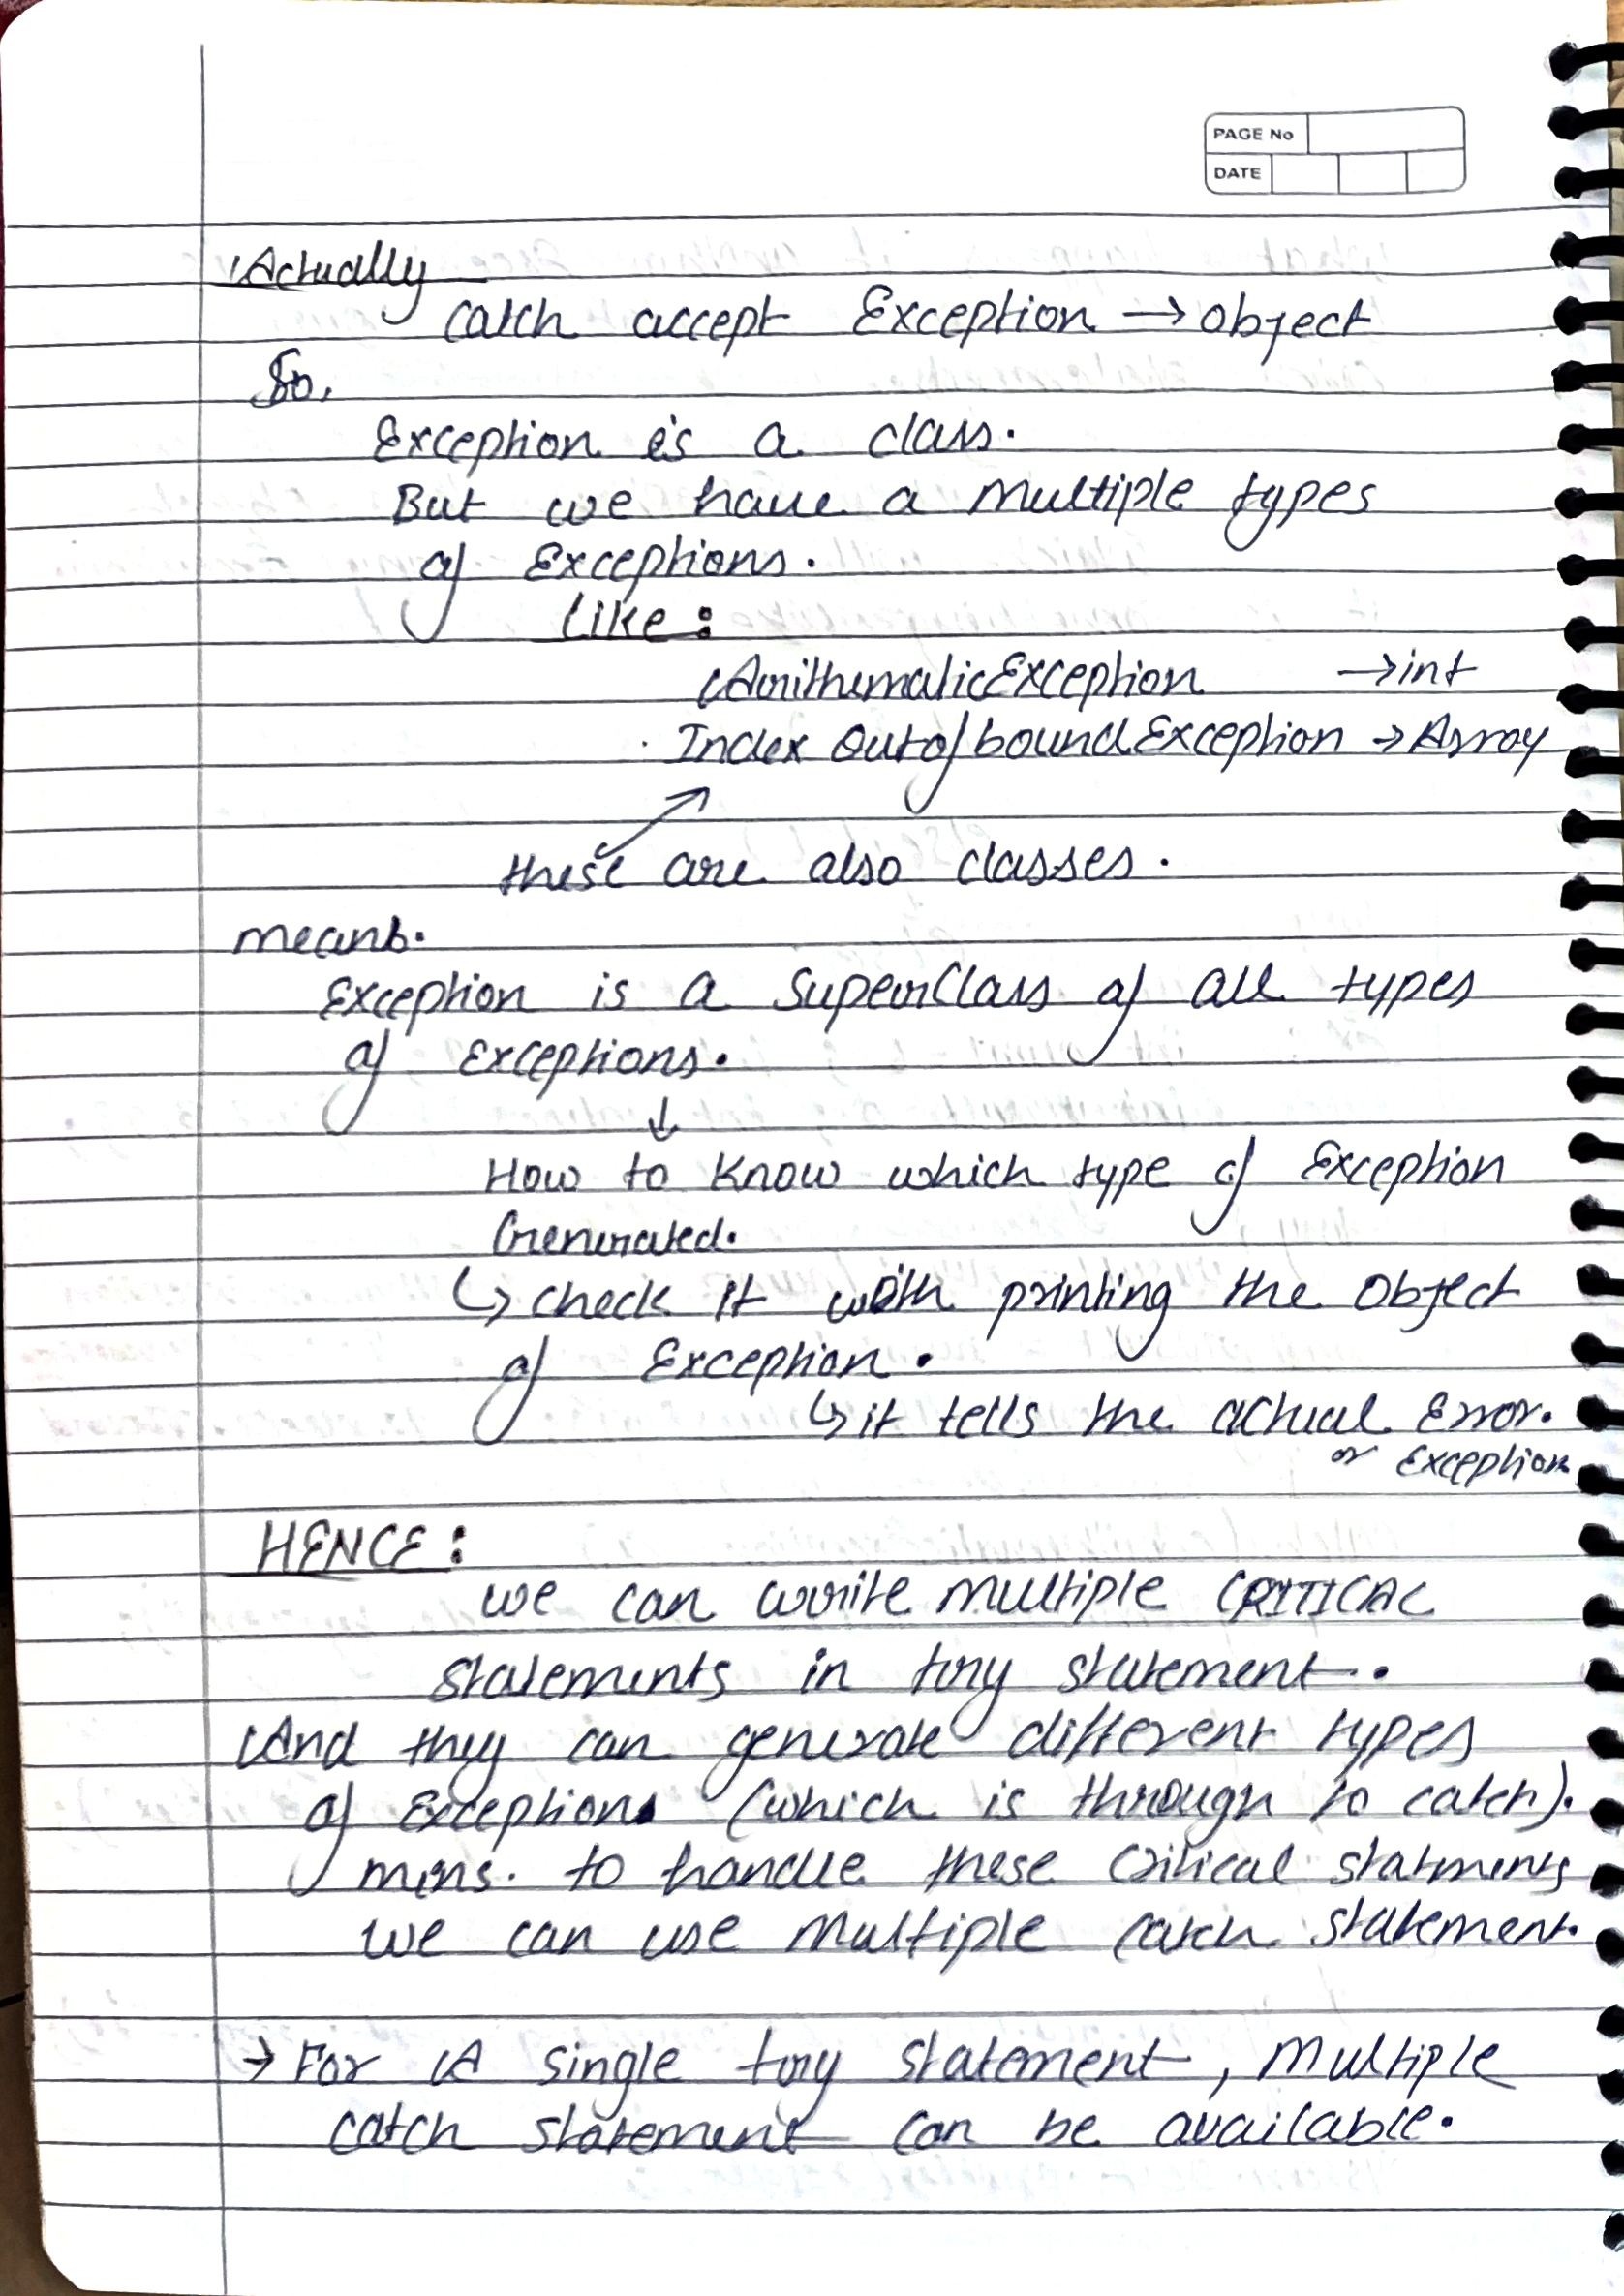 PAGE No
DATE
Actually
catch accept Exception → object
So,
Exception is a class.
But we have a multiple types
of Exceptions.
Like:
ArithematicException → int
Index OutofboundException → Array
these are also classes.
means.
Exception is a SuperClass of all types
of Exceptions.
↓
How to know which type of Exception
Generated.
↳ check it with printing the object
of Exception.
↳ it tells the actual Error.
or Exception
HENCE:
we can write multiple CRITICAL
statements in try statement.
And they can generate different types
of Exceptions (which is through to catch).
mens. to handle these critical statments
we can use multiple catch statement.
→ For A single try statement, Multiple
catch statement can be available.